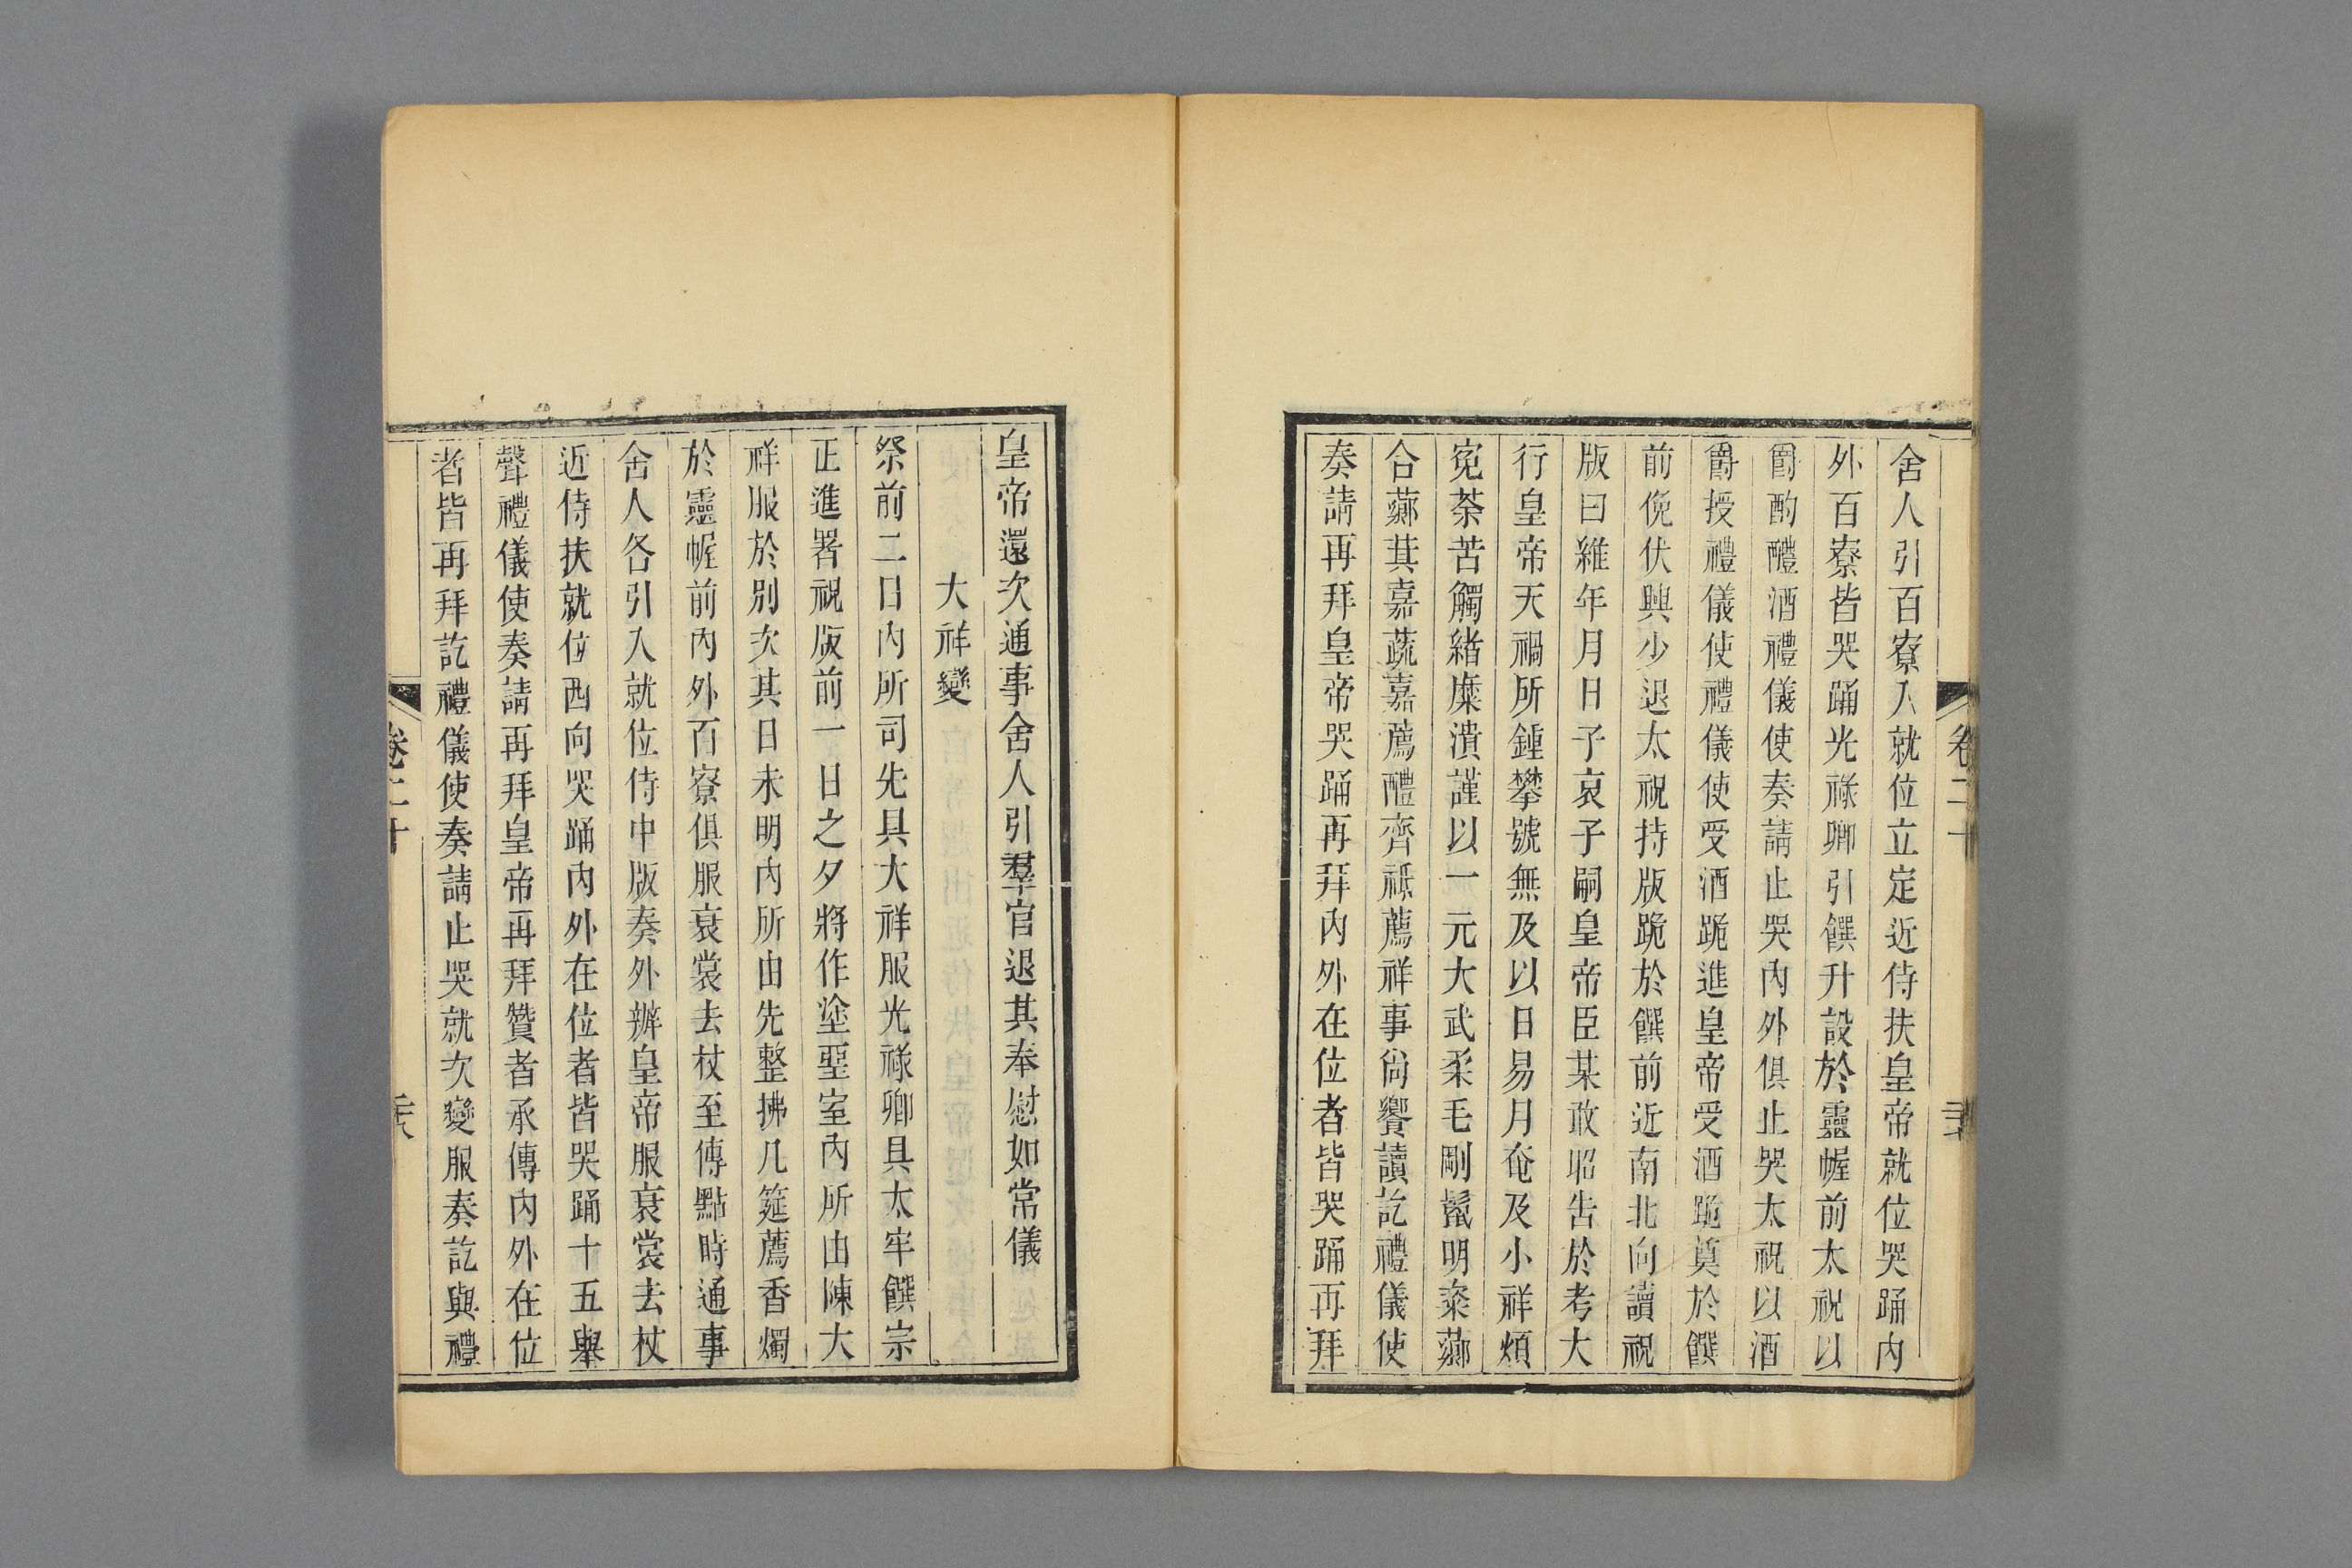 舍人引百寮入就位立定近侍扶皇帝就位哭踊內
外百寮皆哭踊光祿卿引饌升設於靈幄前太祝以
爵酌醴酒禮儀使奏請止哭內外俱止哭太祝以酒
爵授禮儀使禮儀使受酒跪進皇帝受酒跪奠於饌
前俛伏興少退太祝持版跪於饌前近南北向讀祝
版曰維年月日子哀子嗣皇帝臣某敢昭告於考大
行皇帝天禍所鍾攀號無及以日易月奄及小祥煩
寃荼苦觸緖糜潰謹以一元大武柔毛剛鬛明粢薌
合薌萁嘉蔬嘉薦醴齊祗薦祥事尙饗讀訖禮儀使
奏請再拜皇帝哭踊再拜內外在位者皆哭踊再拜
卷二十
皇帝還次通事舍人引羣官退其奉慰如常儀
大祥變
祭前二日內所司先具大祥服光祿卿具太牢饌宗
正進署祝版前一日之夕將作塗堊室內所由陳大
祥服於別次其日未明內所由先整拂几筵薦香燭
於靈幄前內外百寮俱服衰裳去杖至傳點時通事
舍人各引入就位侍中版奏外辦皇帝服衰裳去杖
近侍扶就位西向哭踊內外在位者皆哭踊十五舉
聲禮儀使奏請再拜皇帝再拜贊者承傳內外在位
者皆再拜訖禮儀使奏請止哭就次變服奏訖與禮
卷二十